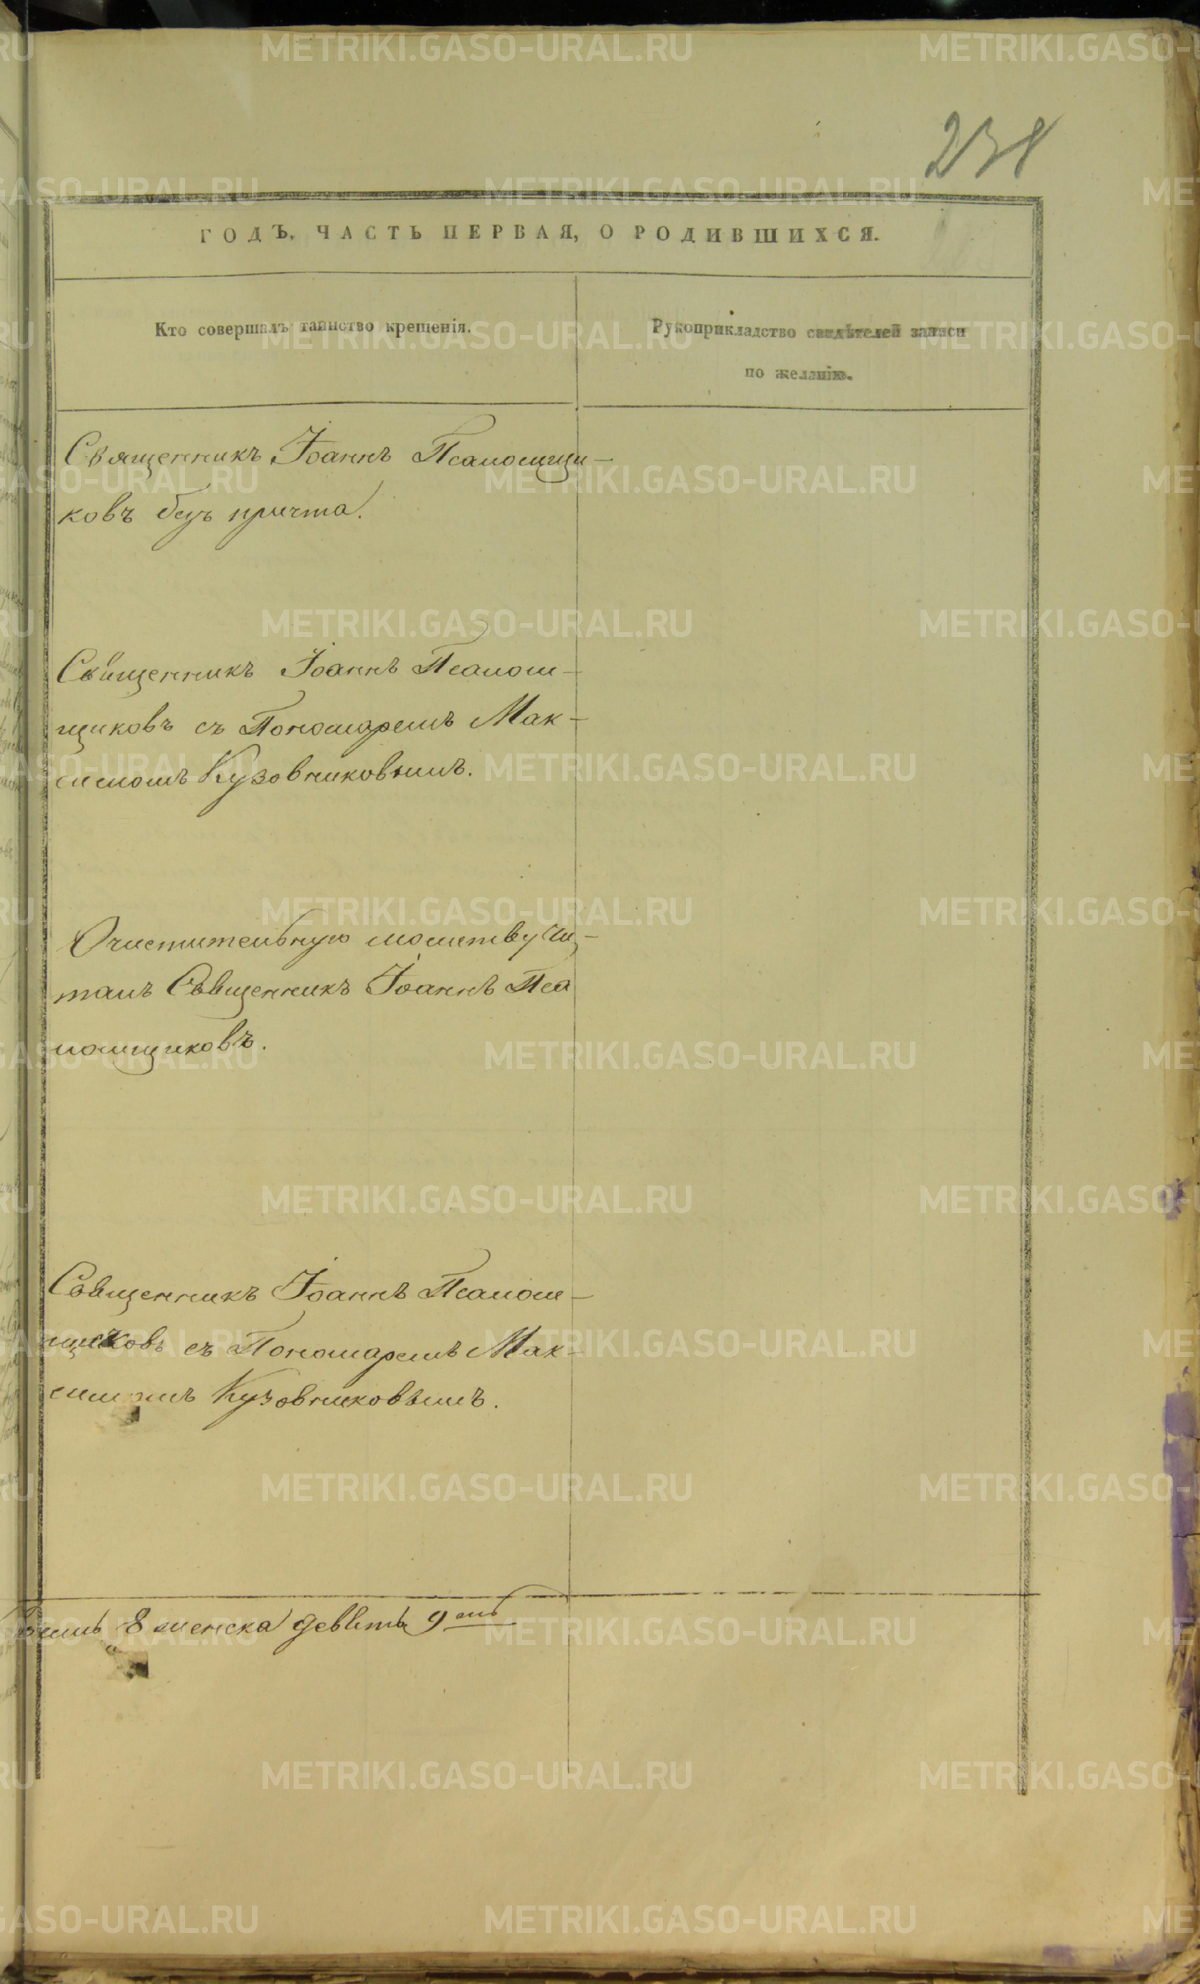 238
ГОДЪ, ЧАСТЬ ПЕРВАЯ, О РОДИВШИХСЯ.
Кто совершалъ таинство крещенія.
Рукоприкладство свидѣтелей записи
по желанію.
Священникъ Іоаннъ Псаломщи-
ковъ безъ причта.
Священникъ Іоаннъ Псалом-
щиковъ съ Пономаремъ Мак-
симомъ Кузовниковымъ.
Очистительную молитву чи-
талъ Священникъ Іоаннъ Пса
ломщиковъ.
Священникъ Іоаннъ Псалом-
щиковъ съ Пономаремъ Мак-
симомъ Кузовниковымъ.
8 женска девять 9
METRIKI.GASO-URAL.RU